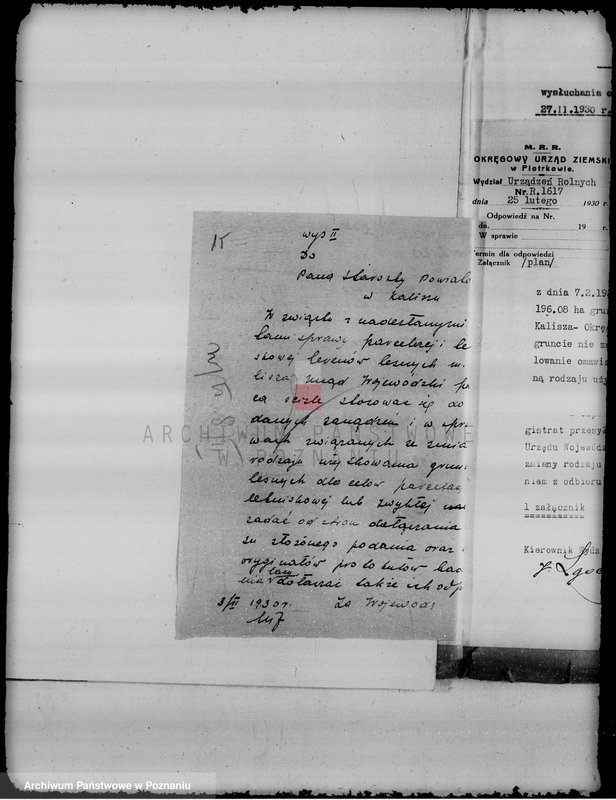 wysłuchania o
27.II.1930 r.
M. R. R.
OKRĘGOWY URZĄD ZIEMSKI
w Piotrkowie.
Wydział Urządzeń Rolnych
Nr. R.1617
dnia 25 lutego 1930 r.
Odpowiedź na Nr.
dn. 19 r.
W sprawie
Termin dla odpowiedzi
Załącznik /plan/
z dnia 7.2.19
196.08 ha gru
Kalisza- Okrę
gruncie nie zn
lowanie omawia
ną rodzaju uży
gistrat przesył
Urzędu Wojewódz
zmiany rodzaju
niem z odbioru
1 załącznik
Kierownik Wydz
wys II
Do
Pana Starosty Powiato
w Kaliszu
W związku z nadesłanymi
sprawy parcelacji
skowej terenów leśnych
Urząd Wojewódzki
stosować się do
danych zarządzeń i w spra
wach związanych ze zmianą
rodzaju użytkowania grun
leśnych dla celów parcelacji
letniskowej lub zwykłej
żądać od stron dołączenia
złożonego podania oraz
oryginałów protokułów bad
dołączać także ich odp
3/III 1930 r. Za Wojewodę
ARCHIWUM PAŃSTWOWE
W POZNANIU
Archiwum Państwowe w Poznaniu